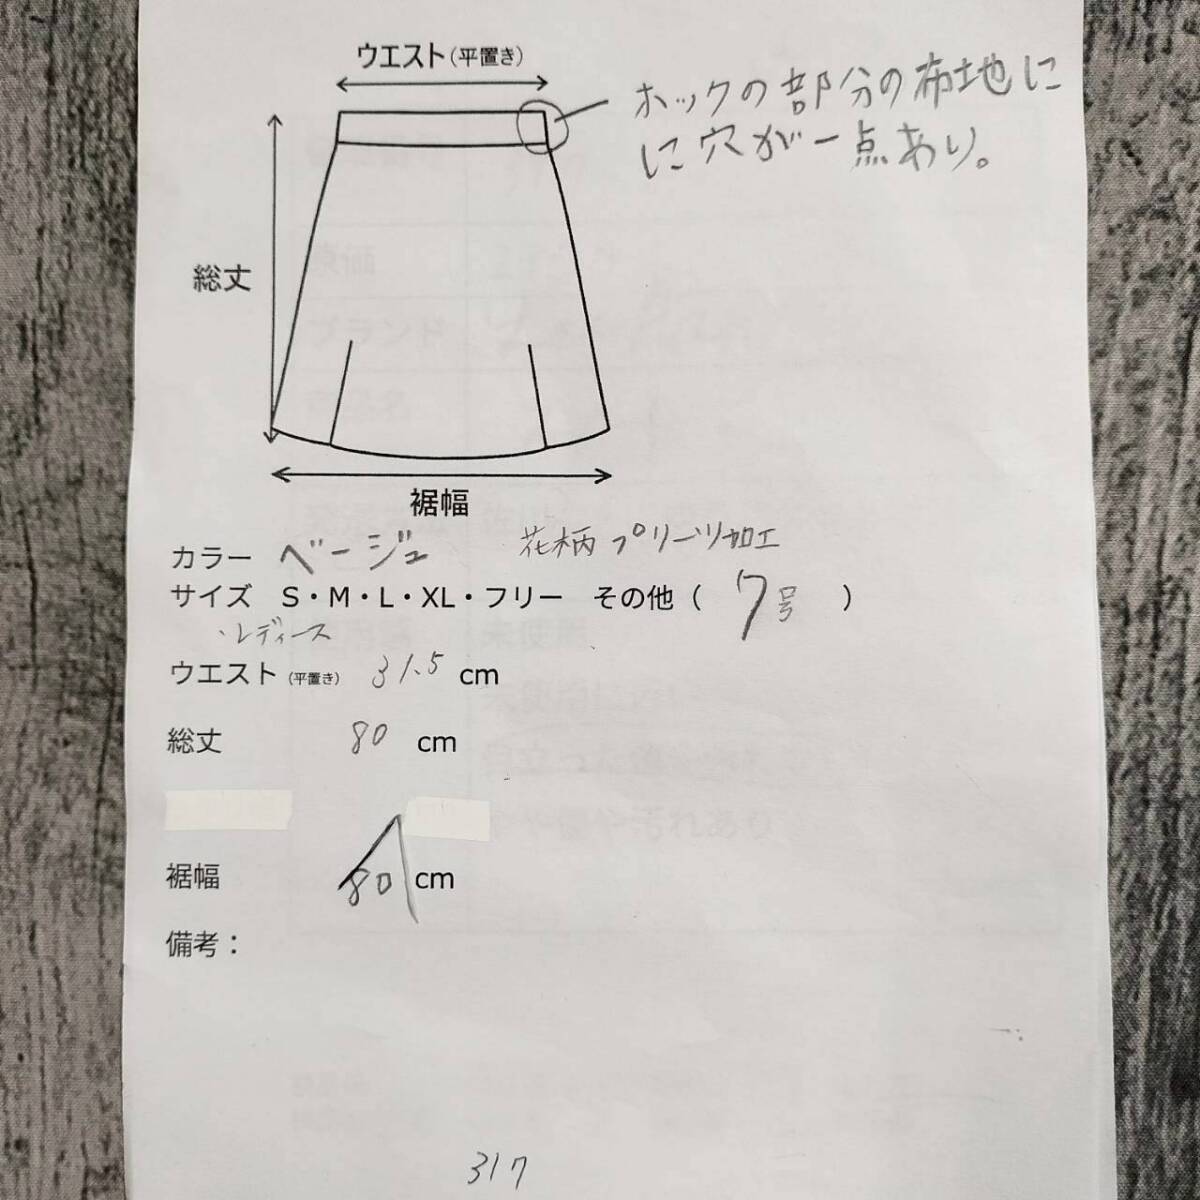 ウエスト(平置き)
ホックの部分の布地に
に穴が一点あり。
総丈
裾幅
カラー ベージュ 花柄プリーツ加工
サイズ S・M・L・XL・フリー その他( 7号 )
・レディース
ウエスト(平置き) 31.5 cm
総丈 80 cm
裾幅 80 cm
備考:
317